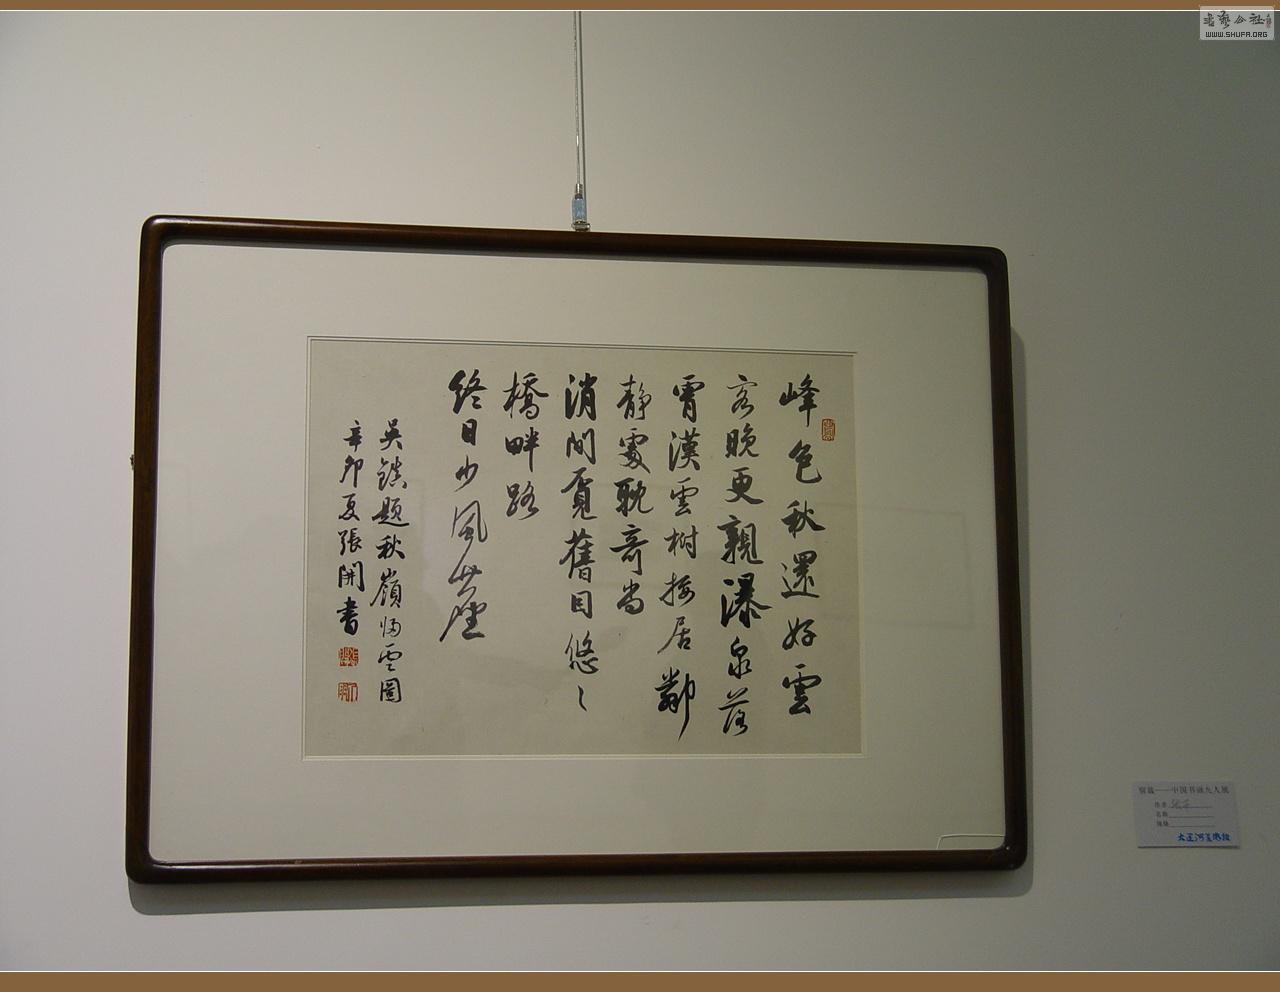 峰色秋還好雲
容晚更親瀑泉落
霄漢雲樹接居鄰
静處耽奇尚
消間覓舊因悠〻
橋畔路
終日少風塵
吳鎮題秋嶺歸雲圖
辛卯夏張開書
书艺公社
WWW.SHUFA.ORG
中国书画九人展
作者
名称
规格
大运河美术馆